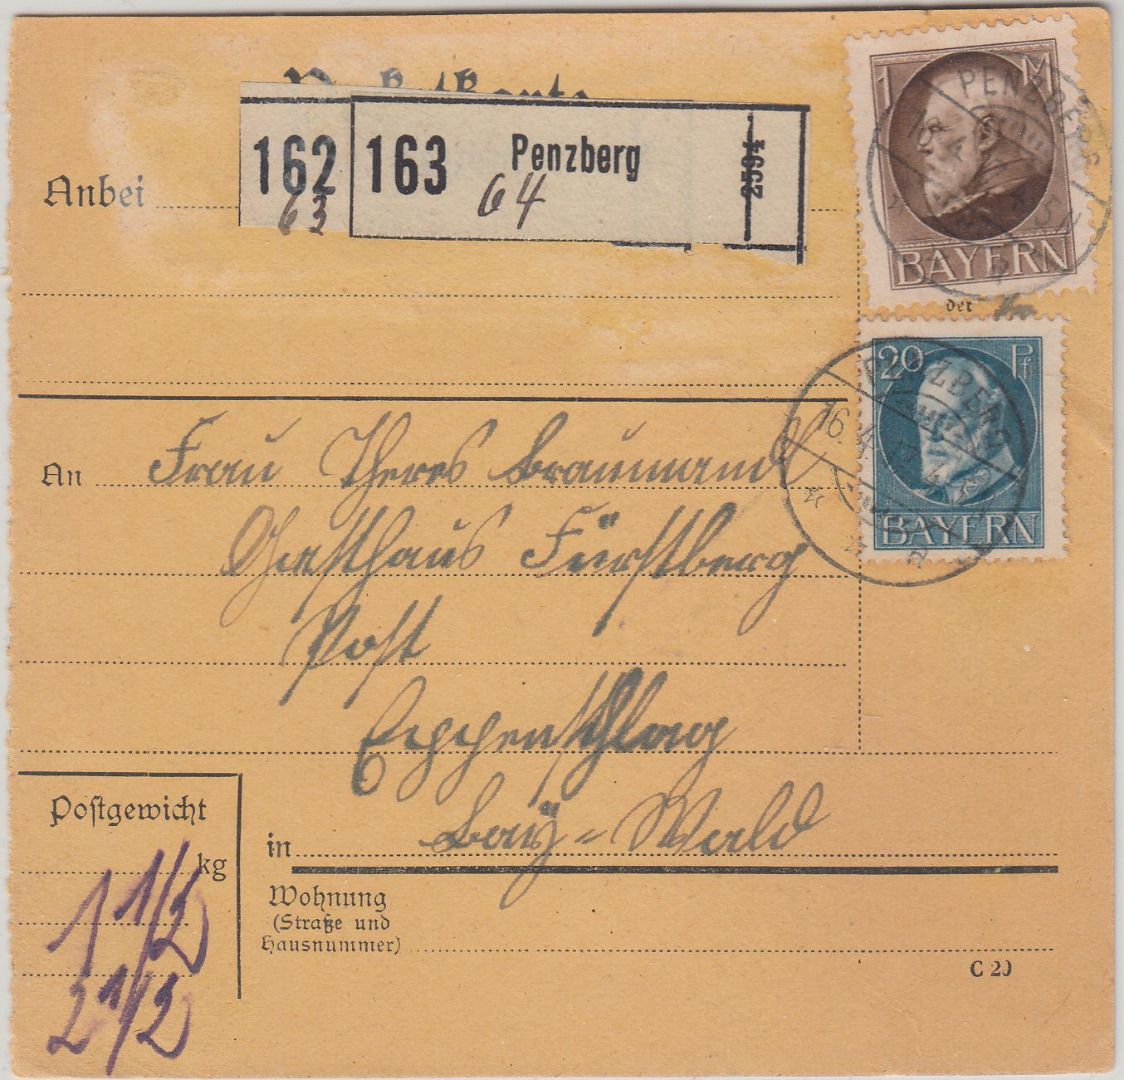 Paketkarte
Anbei
162 163 Penzberg 2594
63 64
1 M
PENZBERG
BAYERN
der
20 Pf
PENZBERG
16.
BAYERN
An Frau Theres Braumandl
Gasthaus Fürstberg
Post
Eppenschlag
Bay=Wald
Postgewicht
kg
1 1/2
2 1/2
in
Wohnung
(Straße und
Hausnummer)
C 20